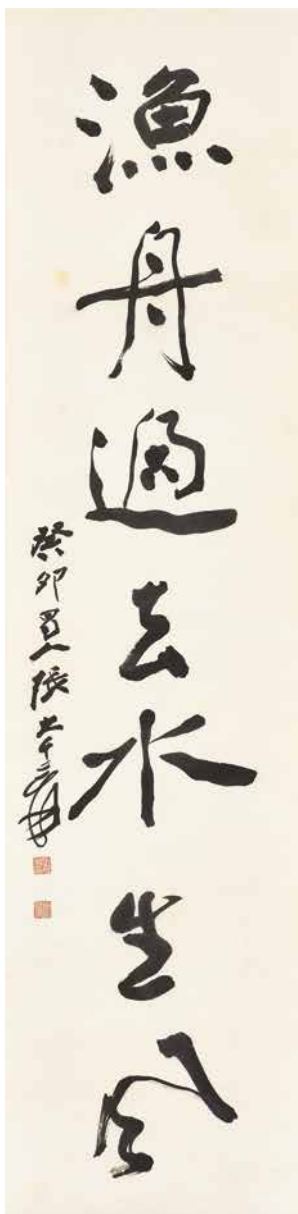 漁舟過去水生風
癸卯蜀人張大千爰